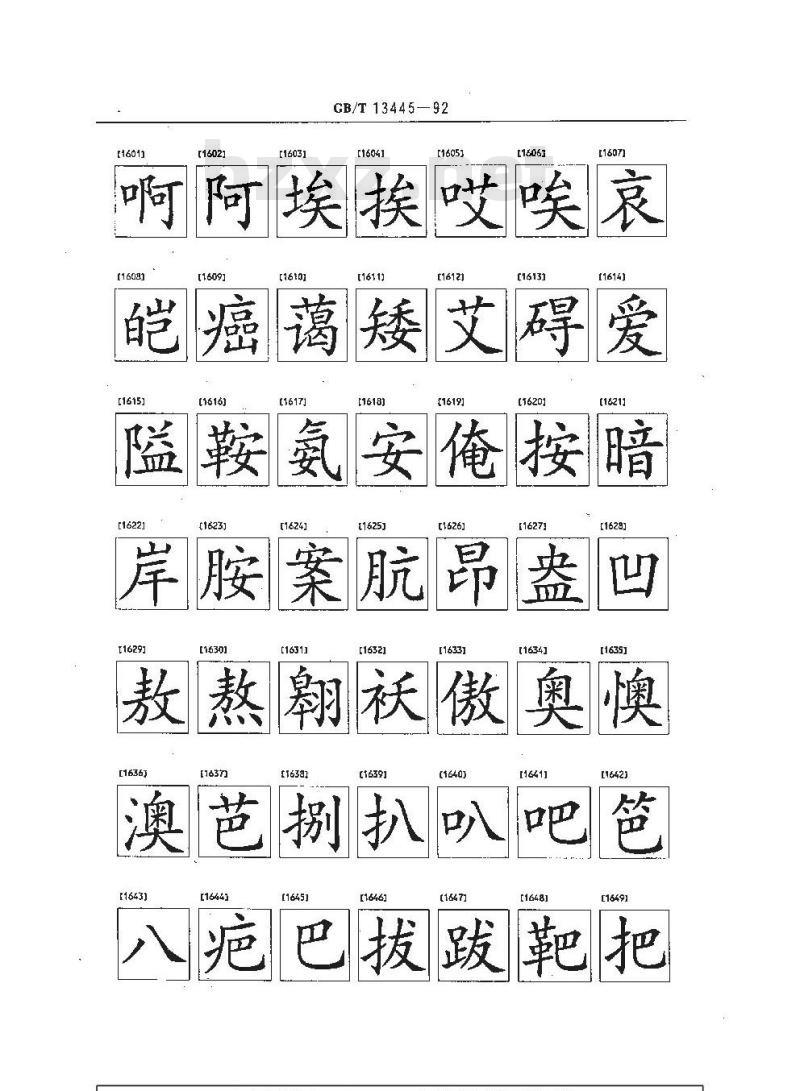 GB/T 13445—92
[1601] [1602] [1603] [1604] [1605] [1606] [1607]
啊 阿 埃 挨 哎 唉 哀
[1608] [1609] [1610] [1611] [1612] [1613] [1614]
皑 癌 蔼 矮 艾 碍 爱
[1615] [1616] [1617] [1618] [1619] [1620] [1621]
隘 鞍 氨 安 俺 按 暗
[1622] [1623] [1624] [1625] [1626] [1627] [1628]
岸 胺 案 肮 昂 盎 凹
[1629] [1630] [1631] [1632] [1633] [1634] [1635]
敖 熬 翱 袄 傲 奥 懊
[1636] [1637] [1638] [1639] [1640] [1641] [1642]
澳 芭 捌 扒 叭 吧 笆
[1643] [1644] [1645] [1646] [1647] [1648] [1649]
八 疤 巴 拔 跋 靶 把
bzxz.net